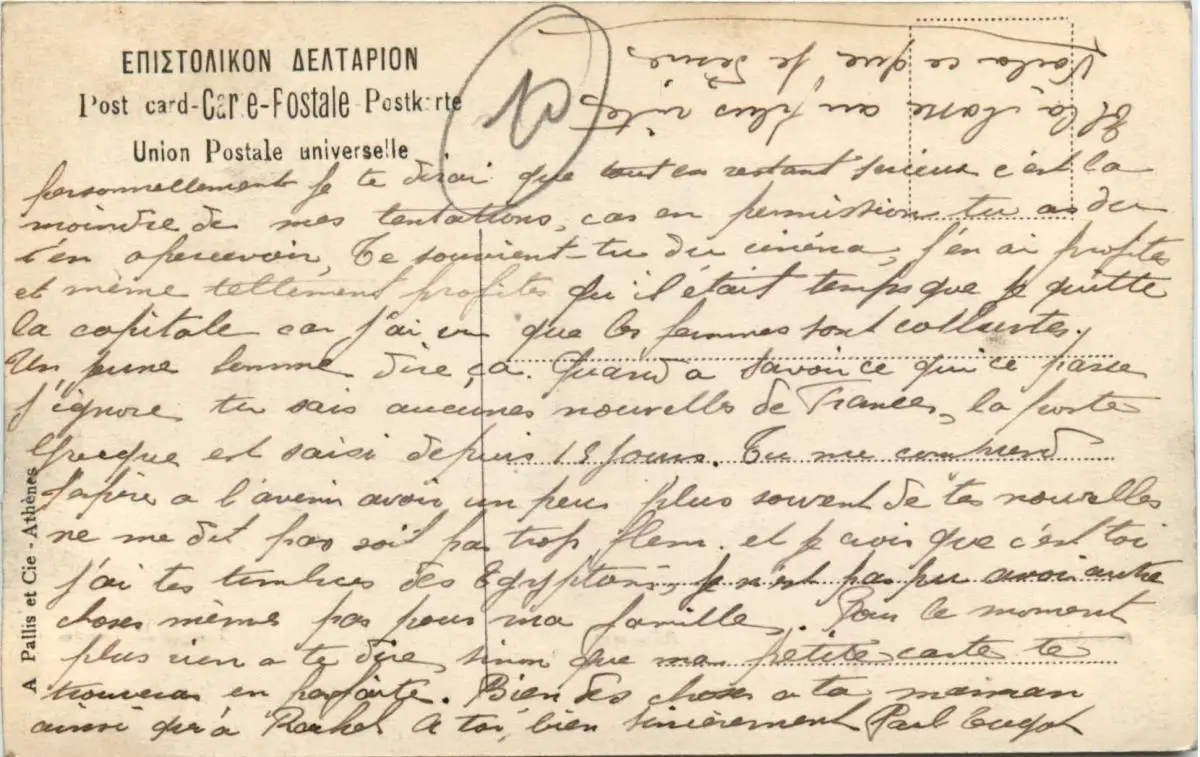 ΕΠΙΣΤΟΛΙΚΟΝ ΔΕΛΤΑΡΙΟΝ
Post card-Carte-Postale Postkarte
Union Postale universelle
personnellement je te dirai que tout en restant serieux c'est la
moindre de mes tentations, car en permission tu as du
t'en apercevoir, Te souvient-tu du cinéma, j'en ai profites
et même tellement profites qu'il était temps que je quitte
la capitale car j'ai vu que les femmes sont collantes.
Un jeune homme dire ça. Quand a savoir ce qui ce passe
j'ignore tu sais aucunes nouvelles de France, la poste
Grecque est saisi depuis 15 jours. Tu me comprend
j'apère a l'avenir avoir un peu plus souvent de tes nouvelles
ne me dit pas soit pas trop flem. et je crois que c'est toi
j'ai tes timbres des Egyptons, je n'est pas pu avoir autre
choses mêmes pas pour ma famille. Pour le moment
plus rien a te dire, sinon que ma petite carte te
trouveras en parfaite. Bien des choses a ta maman
ainsi qu'à Rachel A toi, bien sincèrement Paul
Et la classe au plus vite
Voila ce que je désire
A Pallis et Cie - Athènes